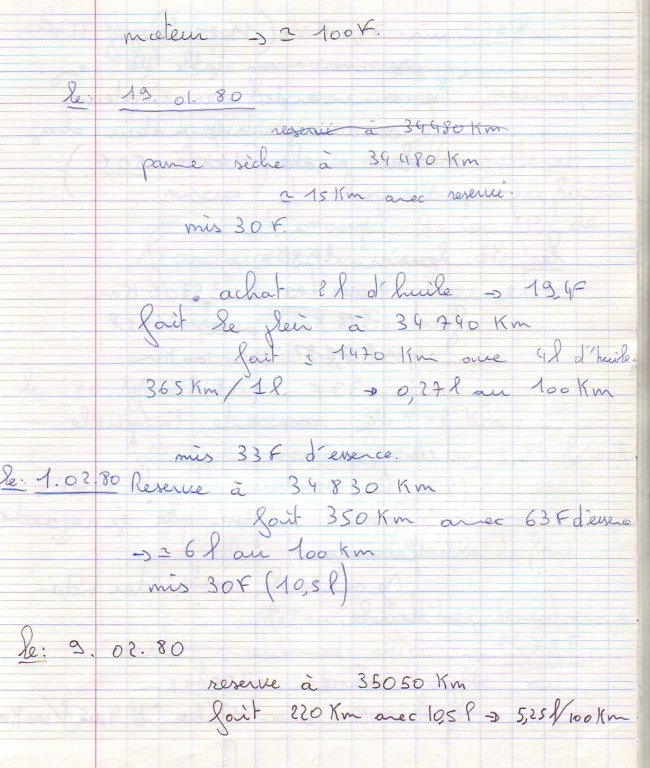 moteur → ≃ 100F.
le: 19. 01. 80
reserve à 34480 Km
panne sèche à 34480 Km
≃ 15 Km avec reserve.
mis 30 F.
. achat 2 l d'huile → 19,4F
fait le plein à 34 740 Km
fait ≃ 1470 Km avec 4l d'huile.
365 Km / 1l. → 0,27 l au 100 Km
mis 33F d'essence.
le: 1.02.80 Reserve à 34 830 Km
fait 350 Km avec 63F d'essence
→ ≃ 6 l au 100 Km
mis 30F (10,5 l)
le: 9. 02. 80
reserve à 35050 Km
fait 220 Km avec 10,5 l → 5,25 l/100 Km